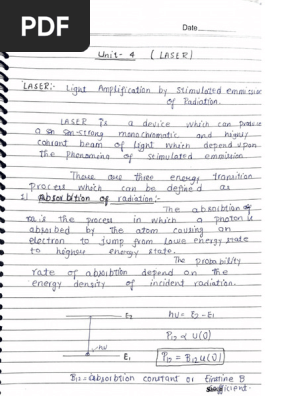 PDF
Date
Unit- 4 ( LASER )
LASER:- Light Amplification by stimulated emmision
of Radiation.
LASER is a device which can produce
a strong monochromatic and highly
coherent beam of light which depend upon
the phenomina of stimulated emmission
There are three energy transition
process which can be defined as
1) Absorbition of radiation:-
The absorbtion of
ra is the process in which a photon is
absorbed by the atom causing an
electron to jump from lowe energy state
to higher energy state.
The probability
rate of absorbtion depend on the
energy density of incident radiation.
E2 hν = E2 - E1
P12 ∝ U(υ)
hν
E1 P12 = B12 U(υ)
B12 = absorbtion constant or Einstine B